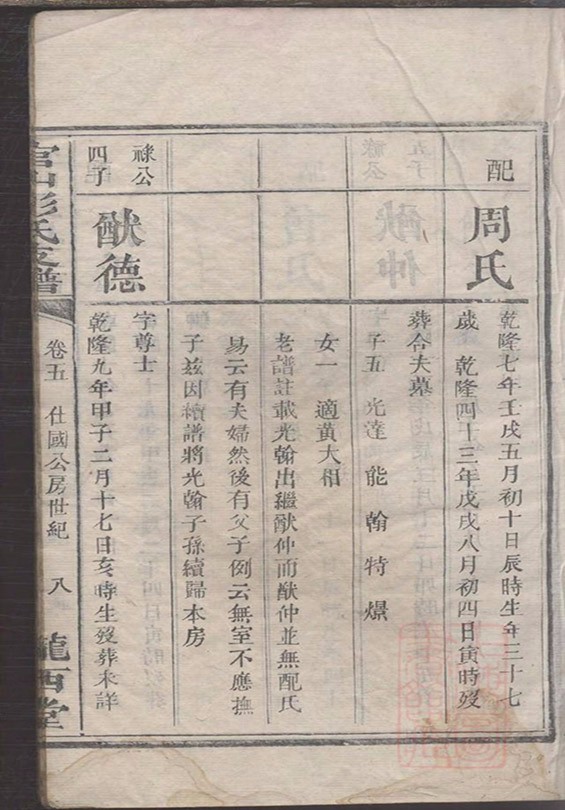 配
周氏
乾隆七年壬戌五月初十日辰時生年三十七
歲 乾隆四十三年戊戌八月初四日寅時歿
葬合夫墓
子五 光達 能 翰 特 燝
女一 適黃大相
老譜註載光翰出繼猷仲而猷仲並無配氏
易云有夫婦然後有父子例云無室不應撫
子茲因續譜將光翰子孫續歸本房
祿公
四子
猷德
字尊士
乾隆九年甲子二月十七日亥時生歿葬未詳
彭氏支譜
卷五 仕國公房世紀 八
隴西堂